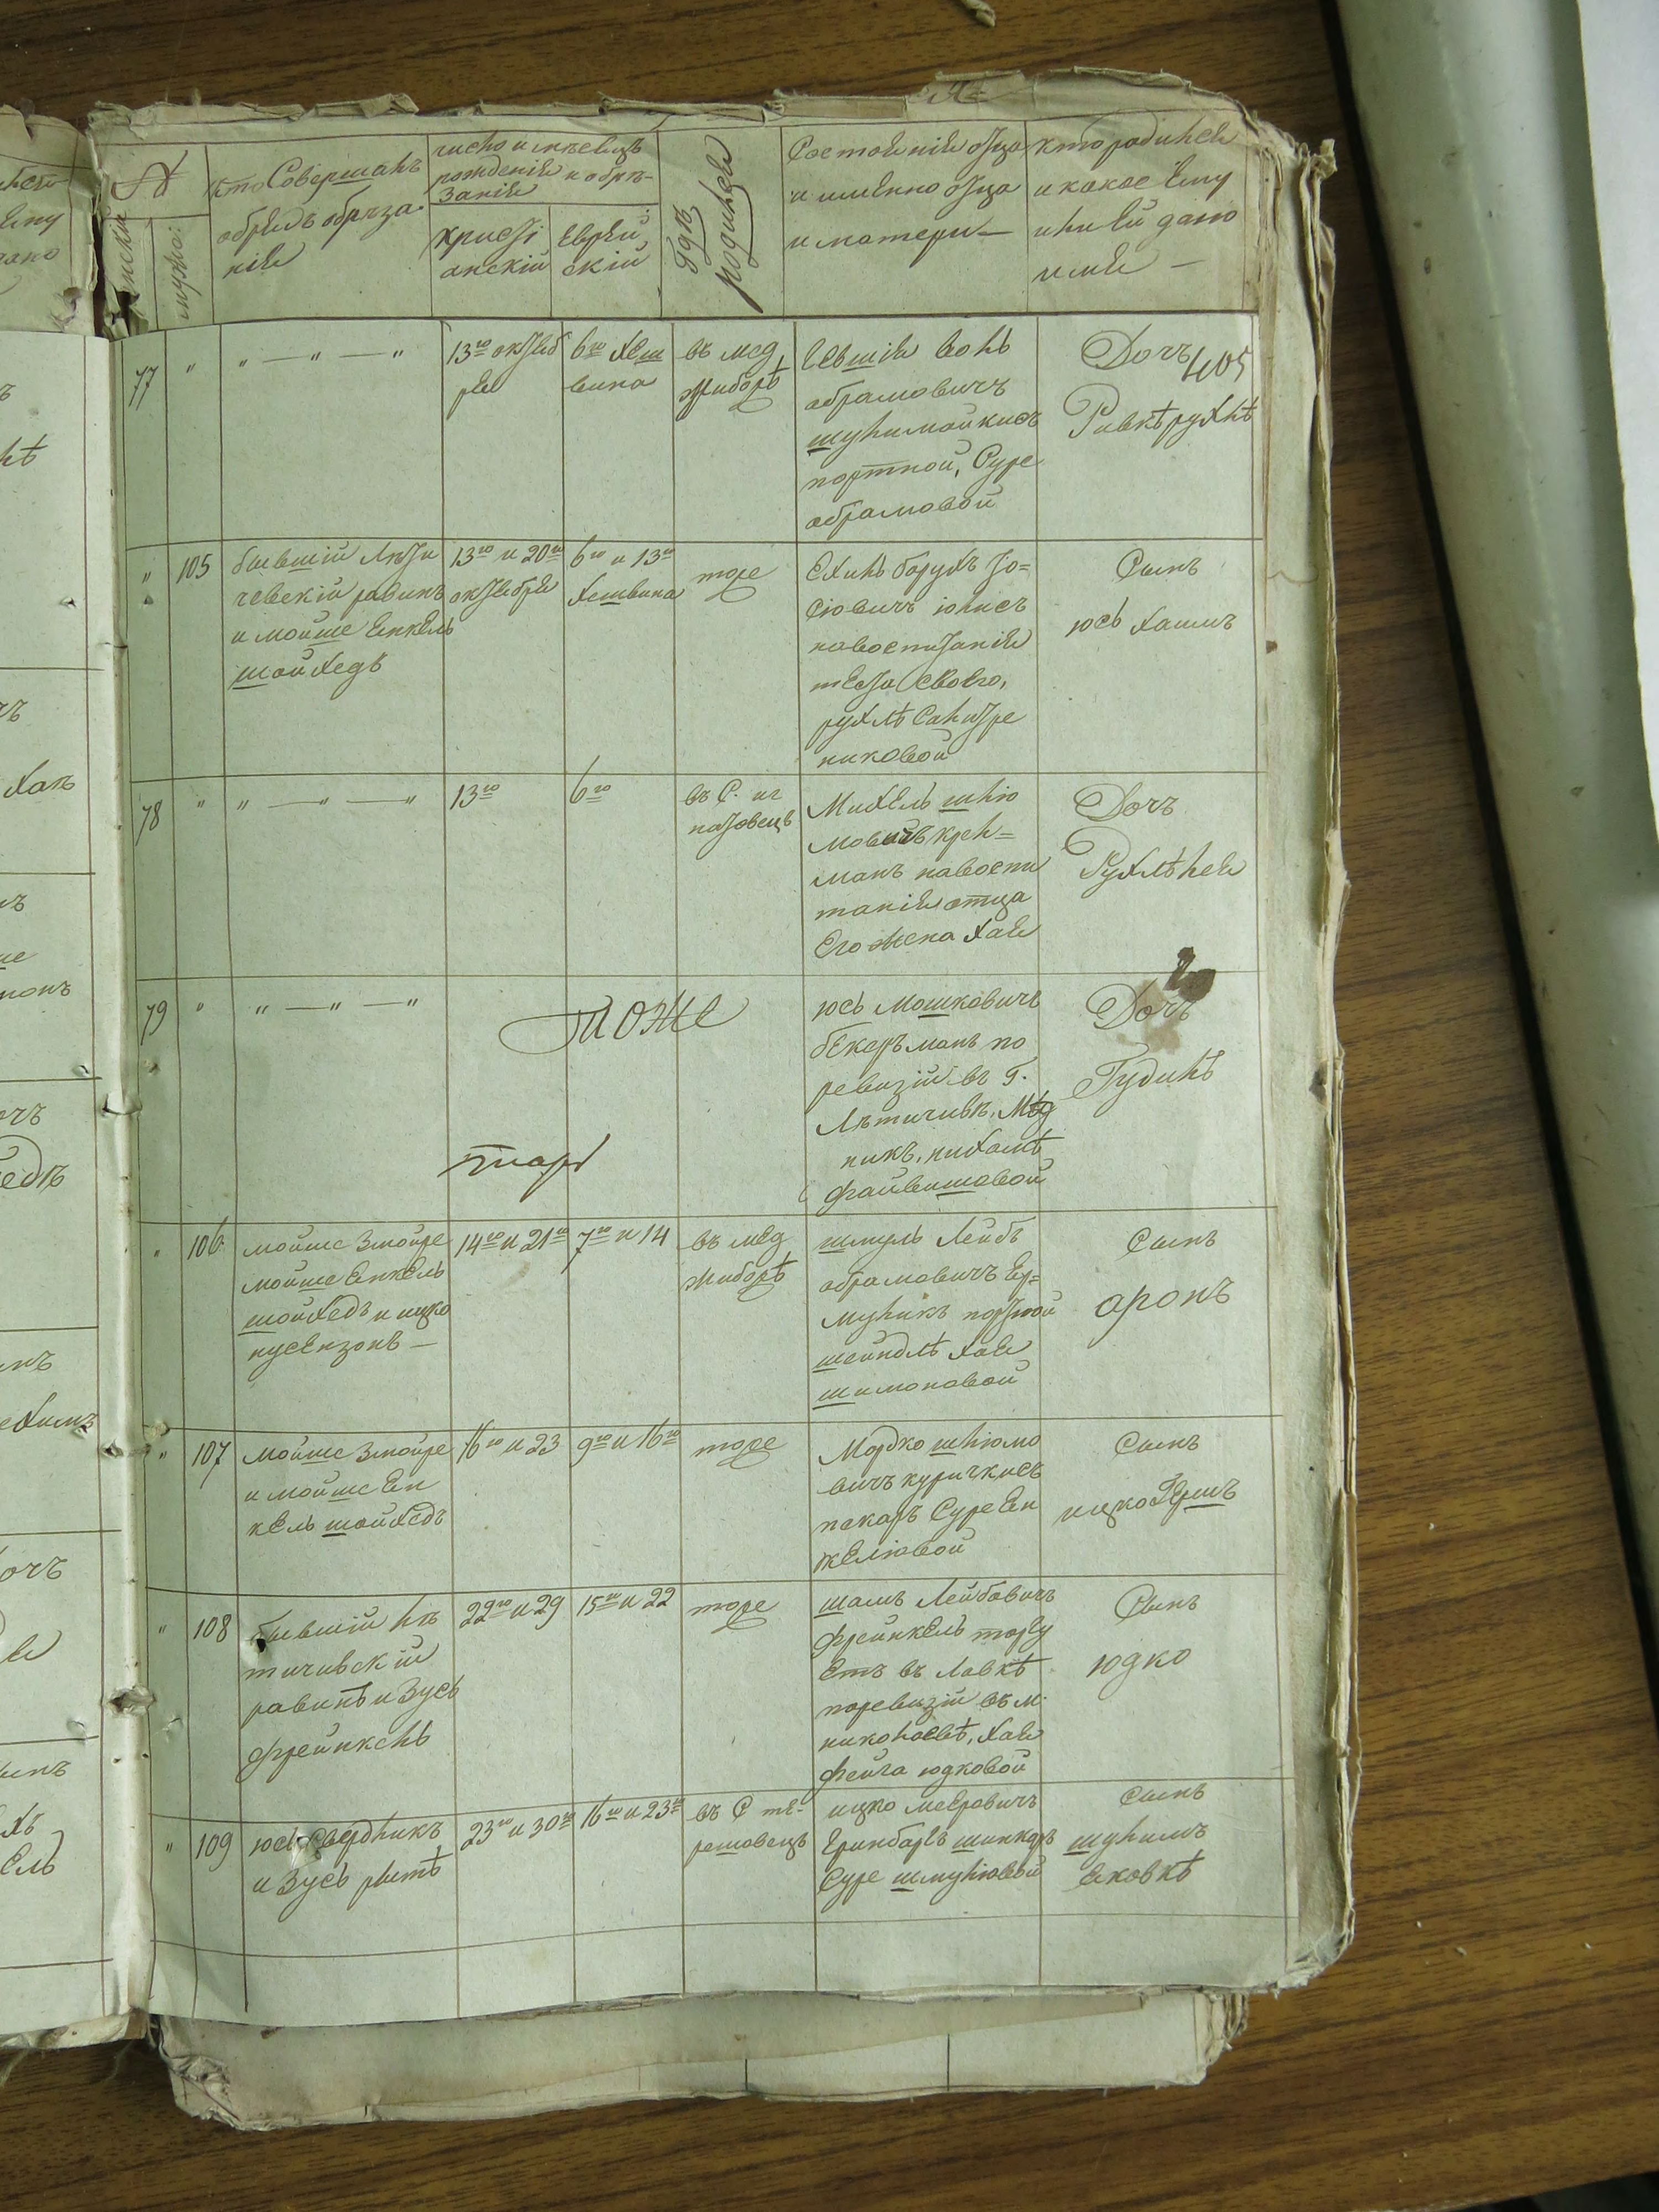 №
женски
мужс:
кто Совершалъ
обрядъ обреза
нія
число и месецъ
рожденія и обре-
занія
христі
анскій
Еврей
скій
Где
родился
Состояніе отца
и имянно отца
и матери —
кто родился
и какое Ему
или Ей дано
имя —
77 " " — " — "
13го октяб
ря
6го Хеш
вина
въ мед
жиборѣ
абрамовичъ
портной, Суре
абрамовой
Дочъ
405
Ривкѣ рухлѣ
" 105
бывшій Лети
чевскій равинъ
и мойше Янкель
шойхедъ
13го и 20го
октября
6го и 13го
Хешвина
тоже
борухъ
сіовичъ
навоспитаніи
тестя своего,
рухлѣ
никовой
Сынъ
юсь хаимъ
78 " " — " — "
13го
6го
въ С.
Михель шлю
мовичъ
манъ навоспи
таніи отца
Его жена хая
Дочъ
Рухлѣ лея
79 " " — " — "
тоже
юсь мошковичъ
бекерманъ по
ревизіи въ г.
Летичиве,
файвишовой
Дочъ
Гудилѣ
" 106
мойше Змойре
мойше Янкель
шойхедъ и ицко
нусензонъ —
14го и 21го
7го и 14
въ мед
жиборѣ
шмуль Лейбъ
абрамовичъ
портной
шейндлѣ хая
шимоновой
Сынъ
аронъ
" 107
мойше Змойре
и мойше Ян
кель шойхедъ
16го и 23
9го и 16го
тоже
Мордко шлюмо
вичъ куричкисъ
пекаръ Суре Ян
келювой
Сынъ
ицко Гершъ
" 108
бывшій ле
тичивскій
равинъ и Зусь
френкель
22го и 29
15го и 22
тоже
Лейбовичъ
френкель торгу
етъ въ лавкѣ
поревизіи въ м.
николаевѣ, хая
фейга юдковой
Сынъ
юдко
" 109
юсь Свердликъ
и Зусь
23го и 30го
16го и 23го
въ С те-
решовецъ
ицко мееровичъ
Гринбаргъ шинкаръ
Суре шмулювой
Сынъ
шулимъ
яковкѣ